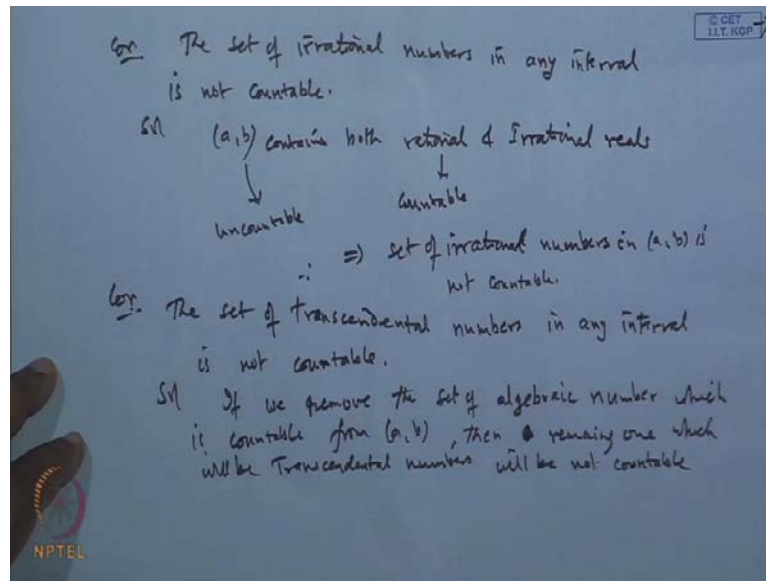 © CET
I.I.T. KGP
Cor. The set of irrational numbers in any interval
is not countable.
Sol (a,b) contains both rational & Irrational reals
↓ ↓
uncountable countable
∴ ⇒ set of irrational numbers in (a,b) is
not countable.
Cor. The set of transcendental numbers in any interval
is not countable.
Sol If we remove the set of algebraic number which
is countable from (a,b), then remaining one which
will be Transcendental numbers will be not countable
NPTEL